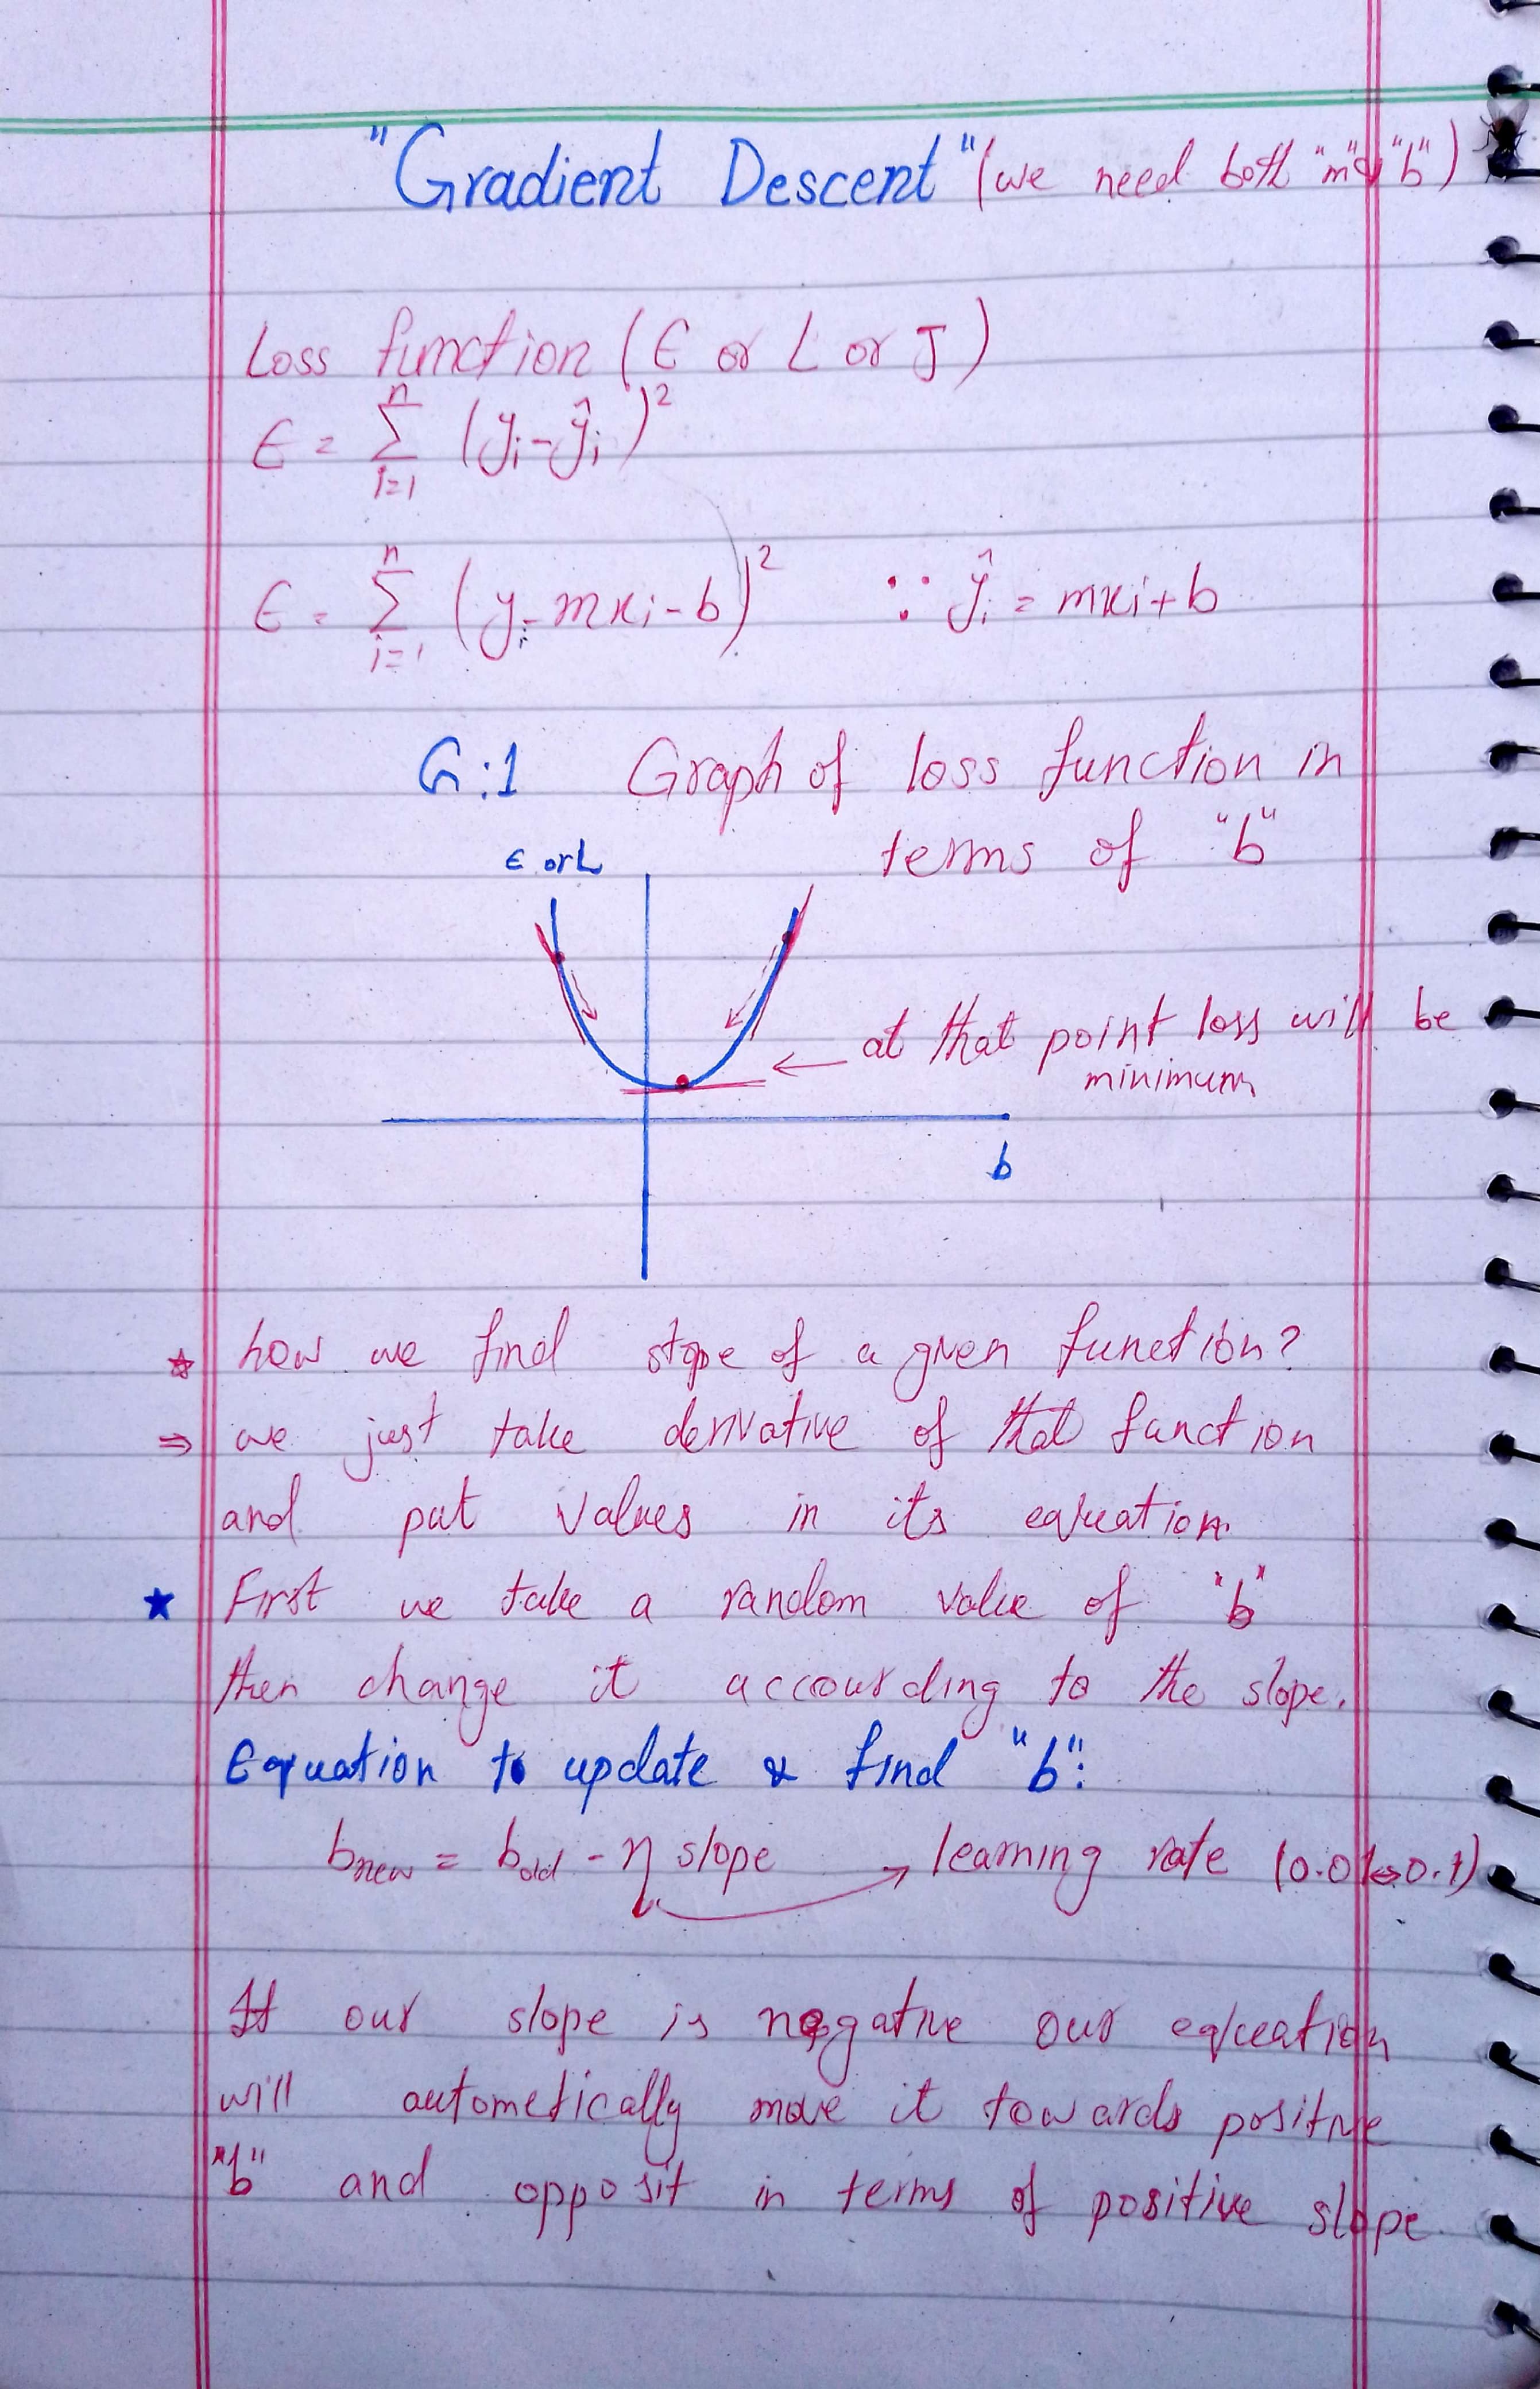 "Gradient Descent" (we need both "m" & "b")
Loss function (E or L or J)
E = Σ_{i=1}^{n} (y_i - ŷ_i)²
E = Σ_{i=1}^{n} (y_i - mx_i - b)² ∵ ŷ_i = mx_i + b
G:1 Graph of loss function in
terms of "b"
E or L
← at that point loss will be
minimum
b
☆ how we find slope of a given function?
⇒ we just take derivative of that function
and put values in its equation.
★ First we take a random value of "b"
then change it accourding to the slope.
Equation to update & find "b":
b_new = b_old - η slope → learning rate (0.01↔0.1)
If our slope is negative our equation
will autometically move it towards positive
"b" and opposit in terms of positive slope.